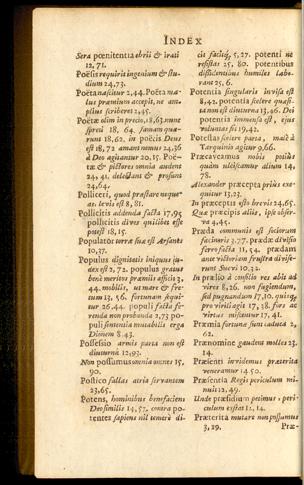 INDEX
Sera pœnitentia ebrii & irati
12, 71.
Poësis requirit ingenium & stu-
dium 24, 73.
Poëta nascitur 2, 44. Poëta ma-
lus præmium accepit, ne am-
plius scriberet 2, 45.
Poëtæ olim in precio, 18, 63. nunc
spreti 18, 64.
18, 62. in poëtis Deus
est 18, 72 amant nemus 24, 36
à Deo agitantur 20, 15. Poë-
tæ & pictores omnia audent
24, 41. delectant & prosunt
24, 64.
Polliceri, quod præstare neque-
as. levis est 8, 81.
Pollicitis addenda facta 17, 95
pollicitis dives quilibet esse
potest 18, 15.
Populator terræ suæ est
10, 37.
Populus dignitatis iniquus ju-
dex est 2, 72. populus gravis
benè meritos præmiis afficit 3,
44. mobilis, ut mare & fre-
tum 13, 56. fortunam æqui-
tur 26, 44. populi facta fe-
renda non probanda 2, 73 po-
puli sententia mutabilis erga
8, 43.
Possessio armis parta non est
diuturna 12, 93.
Non possumus omnia omnes 15,
90.
Postico fallas atria servantem
23, 65.
Potens, hominibus benefaciens
Deo similis 14, 57. contra po-
tentes sapiens nil temerè di-
cis facitq, 5, 27. potenti ne
resistas 25, 80. potentibus
dissidentibus humiles labo-
rant 25, 6.
Potentia singularis invisa est
8, 42. potentia scelere quæsi-
ta non est diuturna 13, 46. Dei
potentia immensa est, ejus
voluntas fit 19, 42.
Potestas favore parta, malè à
Tarquinio agitur 9, 66.
Præcaveamus nobis potiùs
quàm ulciscamur alium 14,
78.
Alexander præcepta priùs exe-
quitur 13, 27.
In præceptis esto brevis 24, 65.
Quæ præcipis aliis, ipse obser-
va 4, 45.
Præda communis est sociorum
facinoris 3, 77. prædæ divisio
ferro facta 11, 54. prædam
ante victoriam frustra divise-
runt Suevi 10, 21.
In prælio & conflictu res abit ad
vires 8, 26. non fugiendum,
sed pugnandum 17, 10. quisq,
pro virili agit 17, 18. fors ac
virtus miscentur 17, 41.
Præmia fortunæ sunt caduca 2,
62.
Prænomine gaudent molles 23,
14.
Præsenti invidemus præterita
veneramur 14, 50.
Præsentia Regis periculum mi-
nuit 12, 49.
Unde præsidium petimus, peri-
culum exstat 12, 14.
Præterita mutare non possumus
3, 29. Præ-